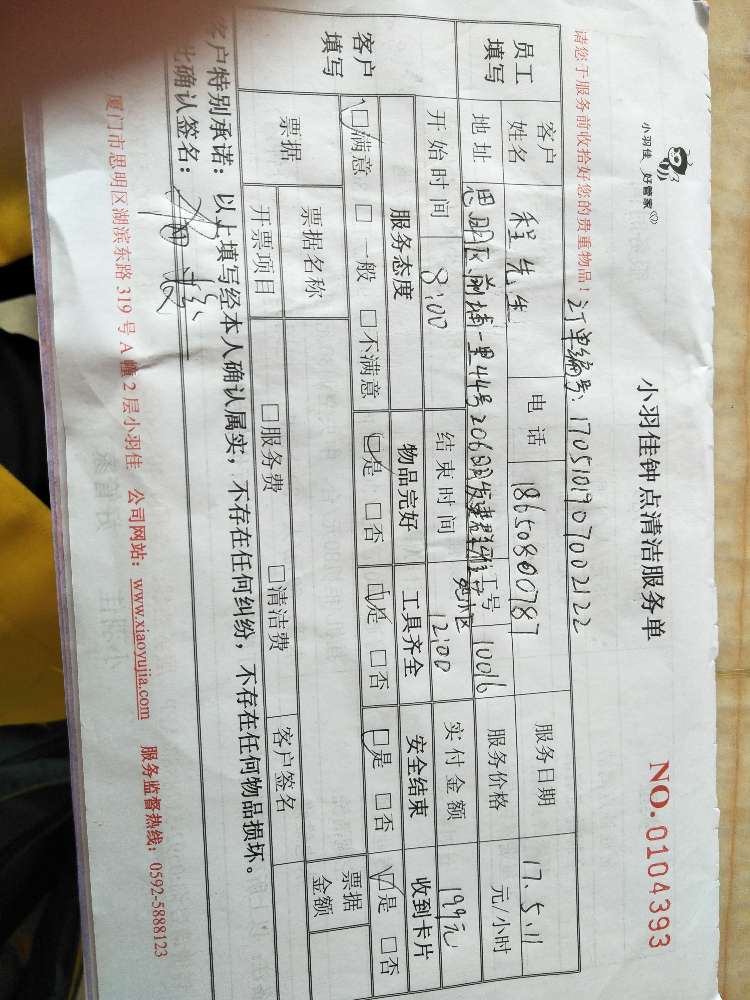 小羽佳 好管家
小羽佳钟点清洁服务单
NO.0104393
请您于服务前收拾好您的贵重物品！ 订单编号: 1705101907002122
员工填写 客户姓名 程先生 电话 18650800787 服务日期 17.5.11
地址 思明区前埔一里44号206 工号 10016 服务价格 元/小时
开始时间 8:00 结束时间 12:00 实付金额 199元
客户填写 服务态度 物品完好 工具齐全 安全结束 收到卡片
□满意 □一般 □不满意 □是 □否 □是 □否 □是 □否 □是 □否
票据 票据名称 票据金额
开票项目 □服务费 □清洁费 客户签名
客户特别承诺：以上填写经本人确认属实，不存在任何纠纷，不存在任何物品损坏。
此确认签名：
厦门市思明区湖滨东路 319 号 A 幢 2 层小羽佳 公司网站：www.xiaoyujia.com 服务监督热线：0592-5888123